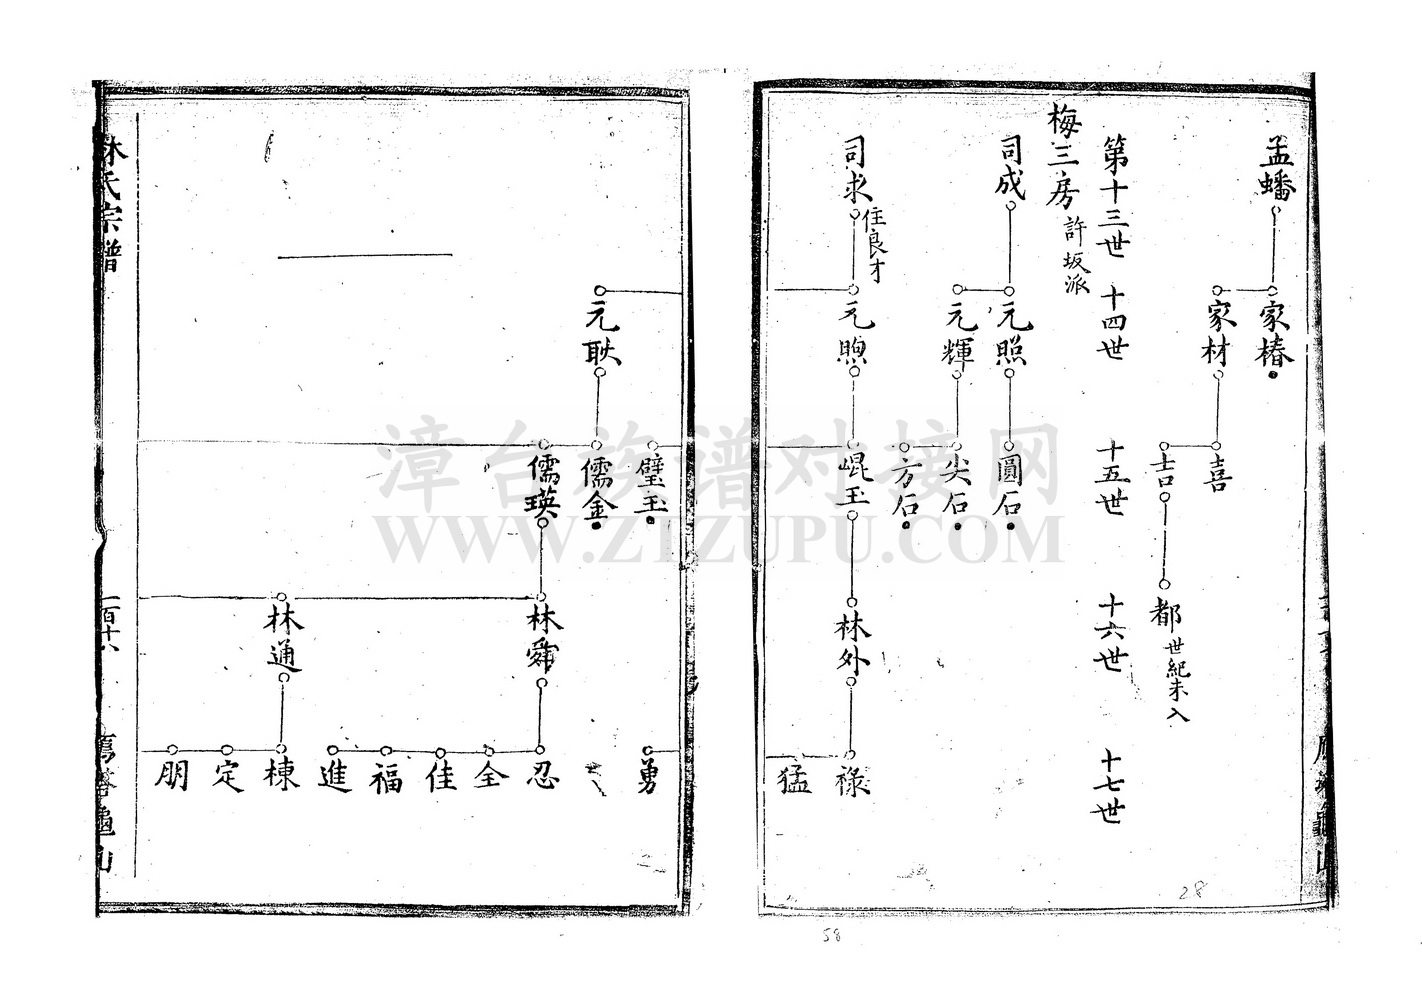 孟蟠
家椿
家材
喜
吉
都 世紀未入
第十三世 十四世 十五世 十六世 十七世
梅三房 許坂派
司成
元照
元輝
圓石
尖石
方石
司求 住良才
元煦
崐玉
林外
祿
猛
勇
璧玉
元耿
儒金
儒瑛
林舜
忍
全
佳
福
進
林通
棟
定
朋
林氏宗譜
一百十六
漳台族谱对接网
WWW.ZTZUPU.COM
28
58